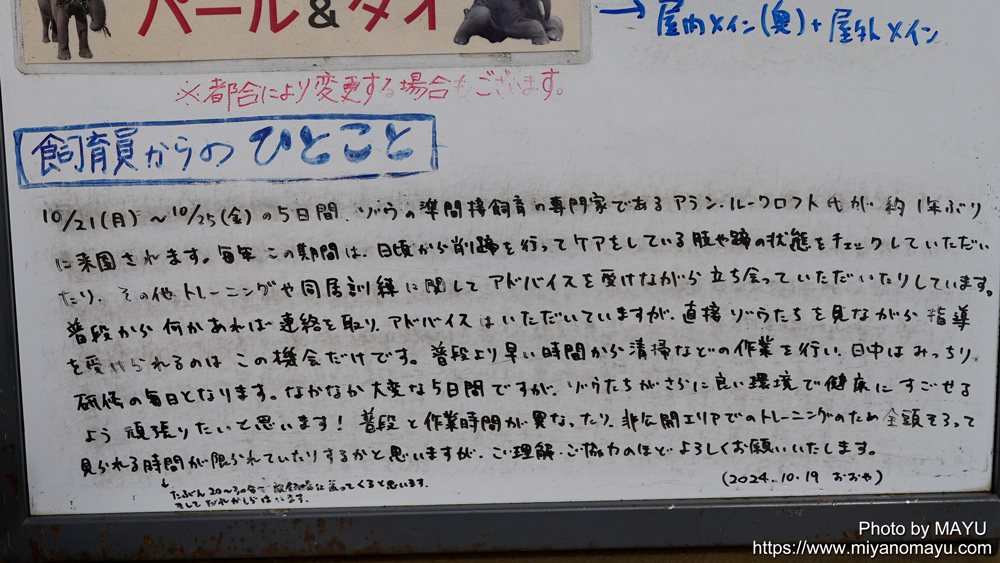 パール&ダイ
→屋内メイン(奥)+屋外メイン
※都合により変更する場合もございます。
飼育員からのひとこと
10/21(月)～10/25(金)の5日間、ゾウの準間接飼育の専門家であるアラン・ルークロフト氏が約1年ぶり
に来園されます。毎年この期間は、日頃から削蹄を行ってケアをしている肢や蹄の状態をチェックしていただい
たり、その他トレーニングや同居訓練に関してアドバイスを受けながら立ち会っていただいたりしています。
普段から何かあれば連絡を取り、アドバイスはいただいていますが、直接ゾウたちを見ながら指導
を受けられるのはこの機会だけです。普段より早い時間から清掃などの作業を行い、日中はみっちり
研修の毎日となります。なかなか大変な5日間ですが、ゾウたちがさらに良い環境で健康にすごせる
よう頑張りたいと思います！普段と作業時間が異なったり、非公開エリアでのトレーニングのため全頭そろって
見られる時間が限られていたりするかと思いますが、ご理解・ご協力のほどよろしくお願いいたします。
↓
たぶん20～30分で戻ってくると思います。
そしてだれかしらはいます。
(2024.10.19 おおや)
Photo by MAYU
https://www.miyanomayu.com/